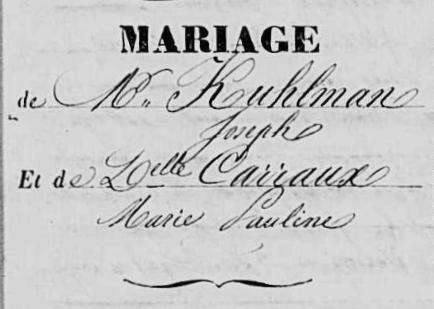 MARIAGE
de Mr. Kuhlman
Joseph
Et de Delle Carraux
Marie Pauline